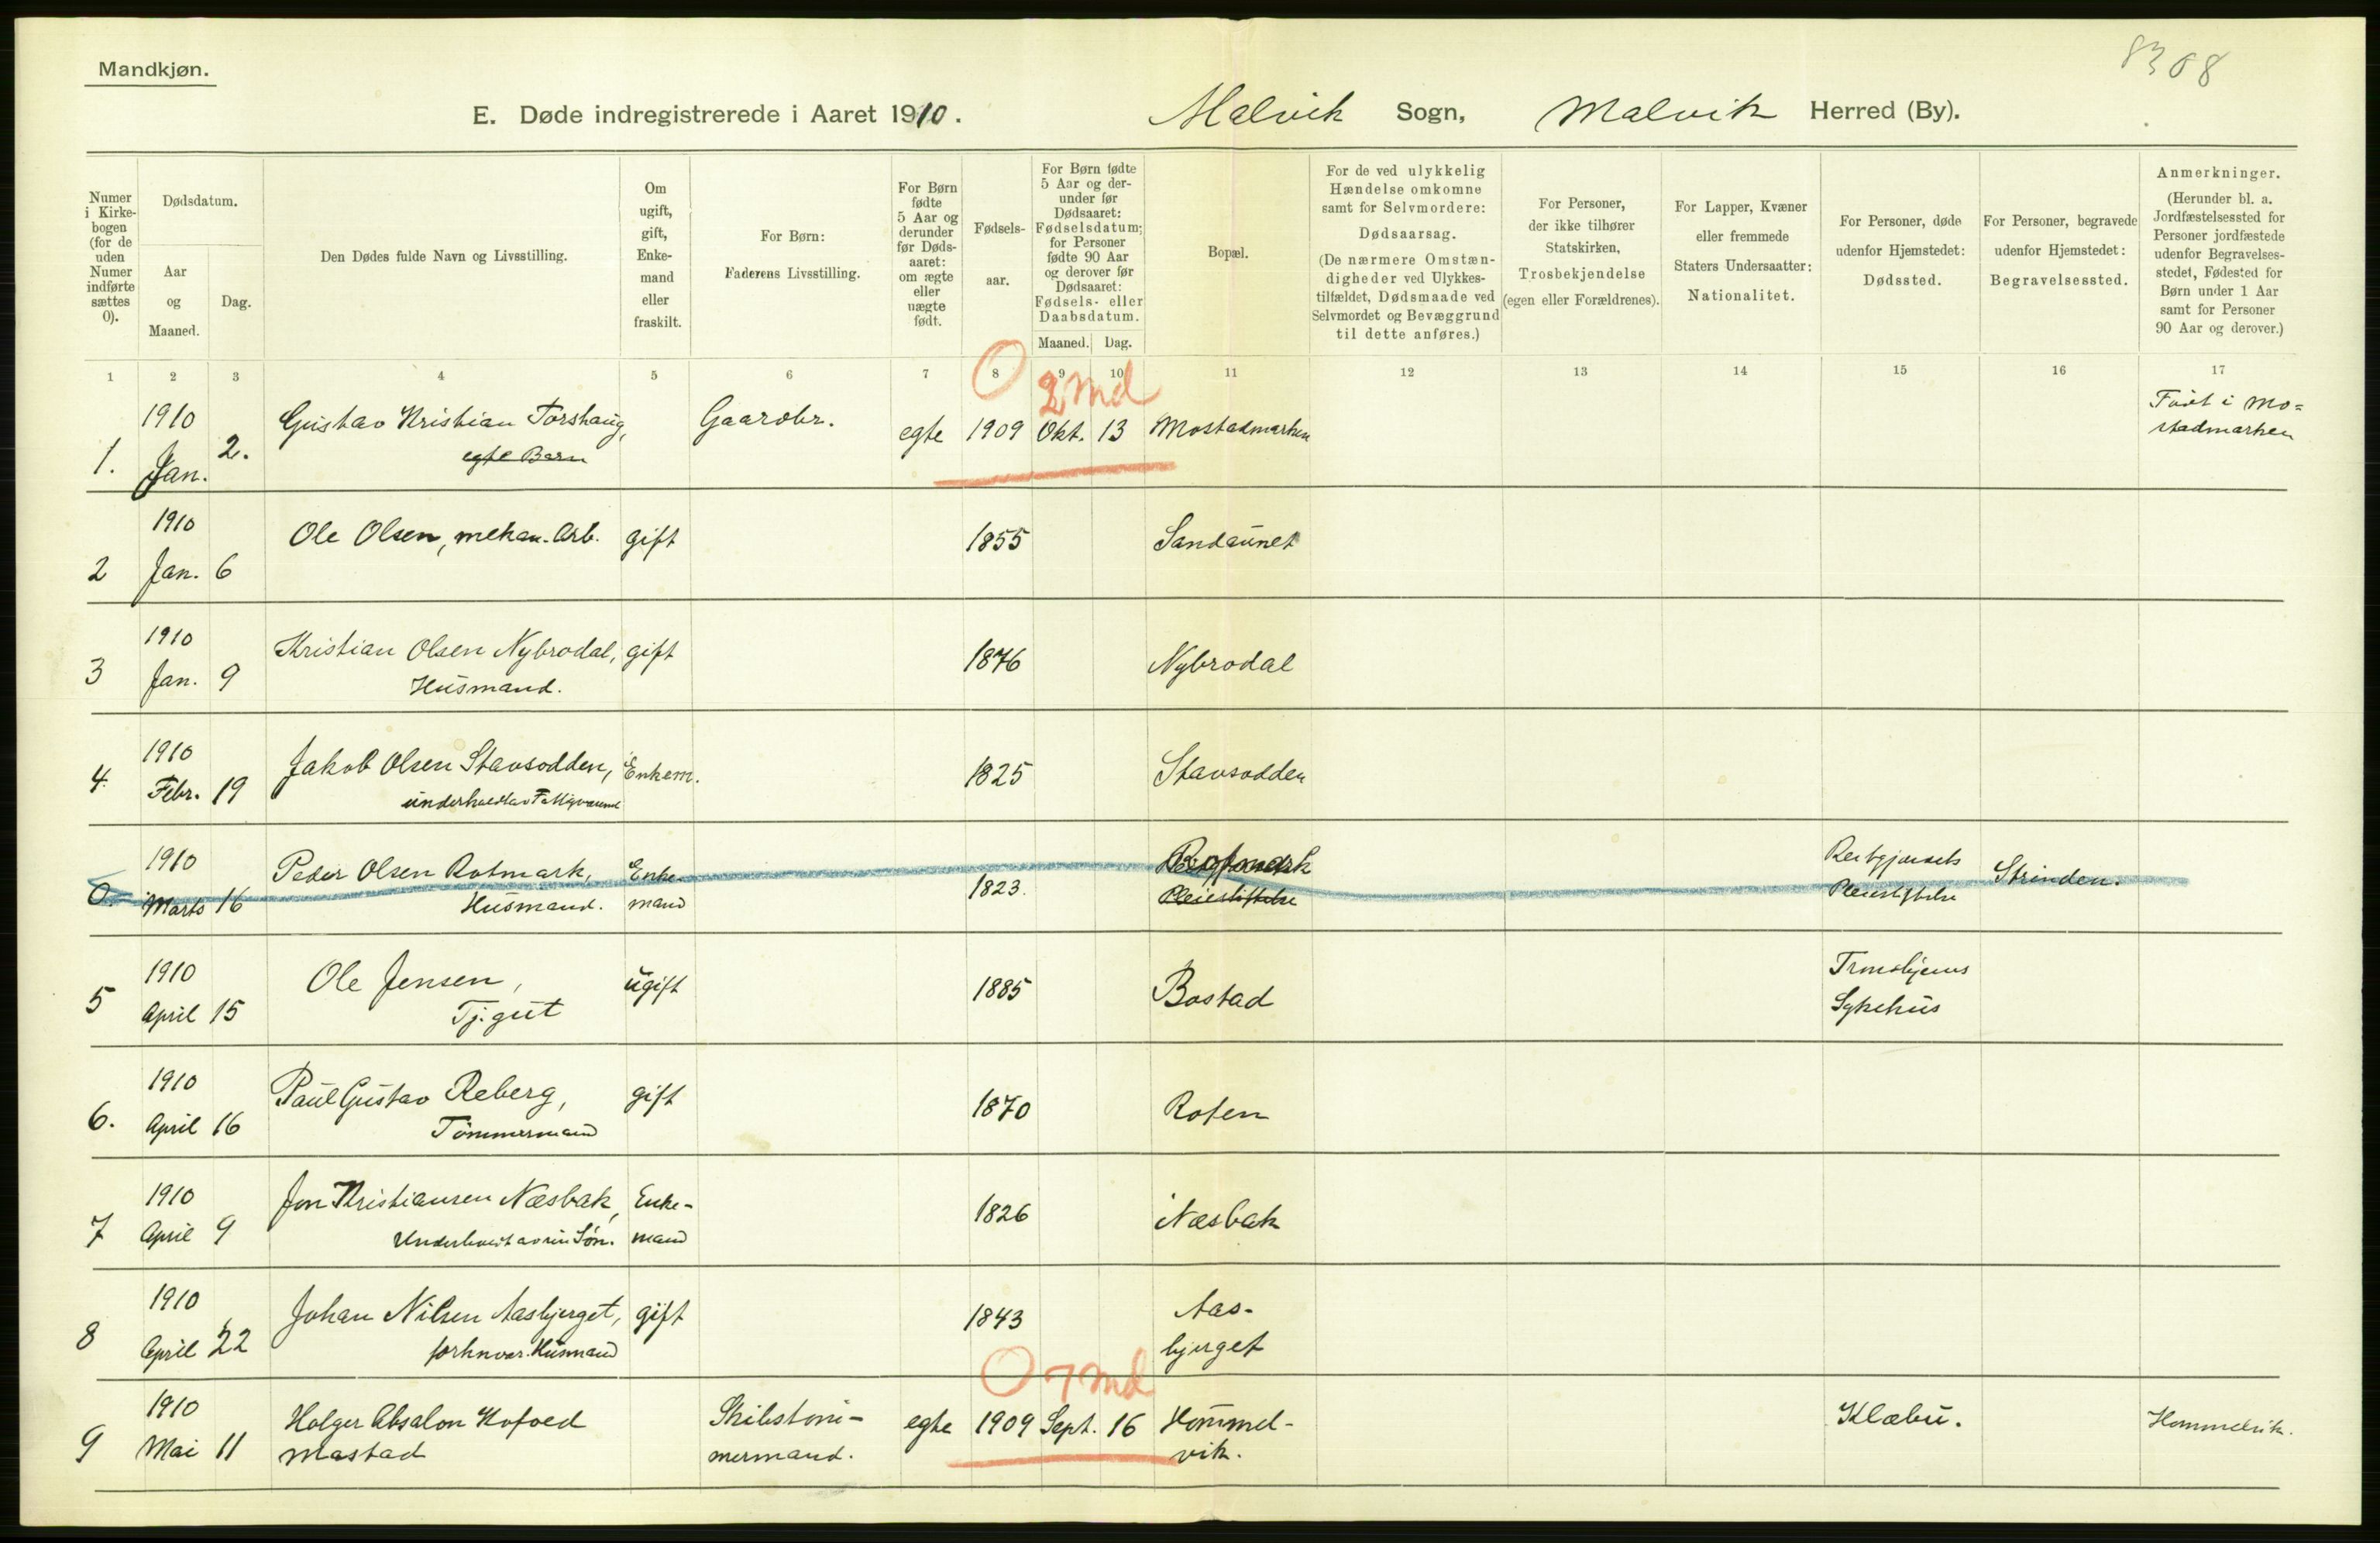 8308
Mandkjøn.
E. Døde indregistrerede i Aaret 1910. Malvik Sogn, Malvik Herred (By).
Numer
i Kirke-
bogen
(for de
uden
Numer
indførte
sættes
0).
Dødsdatum.
Aar
og
Maaned.
Dag.
Den Dødes fulde Navn og Livsstilling.
Om
ugift,
gift,
Enke-
mand
eller
fraskilt.
For Børn:
Faderens Livsstilling.
For Børn
fødte
5 Aar og
derunder
før Døds-
aaret:
om ægte
eller
uægte
født.
Fødsels-
aar.
For Børn fødte
5 Aar og der-
under før
Dødsaaret:
Fødselsdatum;
for Personer
fødte 90 Aar
og derover før
Dødsaaret:
Fødsels- eller
Daabsdatum.
Maaned. Dag.
Bopæl.
For de ved ulykkelig
Hændelse omkomne
samt for Selvmordere:
Dødsaarsag.
(De nærmere Omstæn-
digheder ved Ulykkes-
tilfældet, Dødsmaade ved
Selvmordet og Bevæggrund
til dette anføres.)
For Personer,
der ikke tilhører
Statskirken,
Trosbekjendelse
(egen eller Forældrenes).
For Lapper, Kvæner
eller fremmede
Staters Undersaatter:
Nationalitet.
For Personer, døde
udenfor Hjemstedet:
Dødssted.
For Personer, begravede
udenfor Hjemstedet:
Begravelsessted.
Anmerkninger.
(Herunder bl. a.
Jordfæstelsessted for
Personer jordfæstede
udenfor Begravelses-
stedet, Fødested for
Børn under 1 Aar
samt for Personer
90 Aar og derover.)
1 2 3 4 5 6 7 8 9 10 11 12 13 14 15 16 17
0 2 Md
1. 1910 Jan. 2. Gustav Kristian Torshaug, Gaardbr. egte 1909 Okt. 13 Mostadmarken Født i Mo=
egte Barn stadmarken
2 1910 Jan. 6 Ole Olsen, mekan. Arb. gift 1855 Sandaunet
3 1910 Jan. 9 Kristian Olsen Nybrodal, gift 1876 Nybrodal
Husmand.
4. 1910 Febr. 19 Jakob Olsen Stavsodden, Enkem. 1825 Stavsodden
underholdt av Fattigvæsenet
0. 1910 Marts 16 Peder Olsen Rotmark, Enke- 1823. Rotmark Strinden.
Husmand. mand Pleiestiftelse Pleiestiftelse
5 1910 April 15 Ole Jensen, ugift 1885 Bostad Trondhjems
Tj.gut Sykehus
6. 1910 April 16 Paul Gustav Reberg, gift 1870 Roten
Tømmermand
7 1910 April 9 Jon Kristiansen Næsbak, Enke- 1826 Næsbak
Underholdt av sin Søn. mand
8 1910 April 22 Johan Nilsen Aasbjerget, gift 1843 Aas-
forhnvær. Husmand bjerget
0 7 Md
9 1910 Mai 11 Holger Absalon Kofoed Skibstøm- egte 1909 Sept. 16 Hommel- Klæbu. Hommelvik.
Mastad mermand. vik.